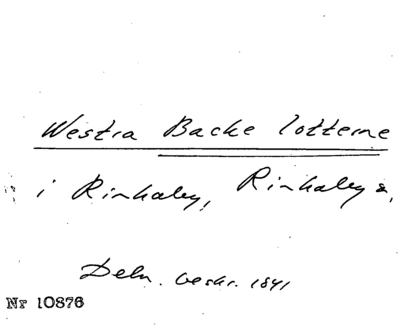 Westra Backe lotterne
i Rinkaby, Rinkaby s.
Deln. beskr. 1841
Nr 10876